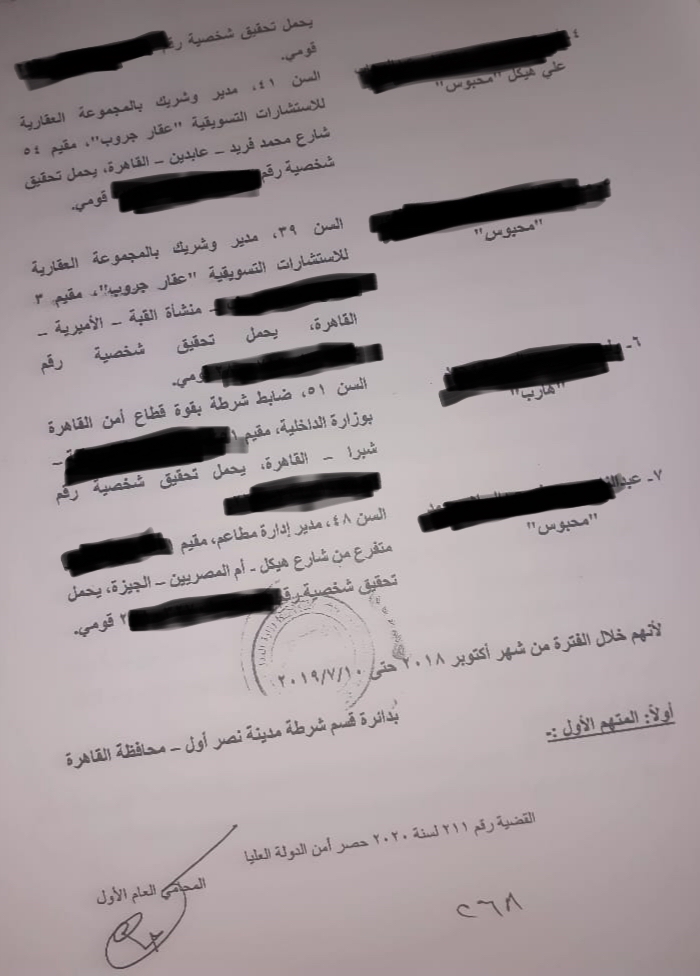 يحمل تحقيق شخصية رقم
قومي.
علي هيكل "محبوس"
السن ٤١، مدير وشريك بالمجموعة العقارية
للاستشارات التسويقية "عقار جروب"، مقيم ٥٤
شارع محمد فريد – عابدين – القاهرة، يحمل تحقيق
شخصية رقم قومي.
"محبوس"
السن ٣٩، مدير وشريك بالمجموعة العقارية
للاستشارات التسويقية "عقار جروب"، مقيم ٣
– منشأة القبة – الأميرية –
القاهرة، يحمل تحقيق شخصية رقم
قومي.
٦-
"هارب"
السن ٥١، ضابط شرطة بقوة قطاع أمن القاهرة
بوزارة الداخلية، مقيم
–
شبرا – القاهرة، يحمل تحقيق شخصية رقم
٧-
"محبوس"
السن ٤٨، مدير إدارة مطاعم، مقيم
متفرع من شارع هيكل - أم المصريين – الجيزة، يحمل
تحقيق شخصية رقم ٢ قومي.
لأنهم خلال الفترة من شهر أكتوبر ٢٠١٨ حتى ٢٠١٩/٧/١٠
بدائرة قسم شرطة مدينة نصر أول – محافظة القاهرة
أولاً: المتهم الأول :-
القضية رقم ٢١١ لسنة ٢٠٢٠ حصر أمن الدولة العليا
المحامي العام الأول
٢٦٨